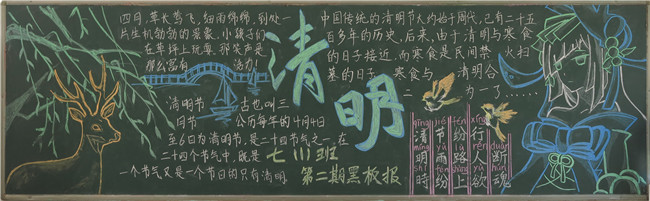 四月,草长莺飞,细雨绵绵,到处一
片生机勃勃的景象,小孩子们
在草坪上玩耍,那笑声是
那么富有 活力!
清明
中国传统的清明节大约始于周代,已有二十五
百多年的历史,后来,由于清明与寒食
的日子接近,而寒食是民间禁火扫
墓的日子,寒食与 清明合
二 为一了……
清明节 古也叫三
月节 公历每年的4月4日
至6日为清明节,是二十四节气之一,在
二十四个节气中,既是
一个节气又是一个节日的只有清明
七(11)班
第二期黑板报
清明时
节雨纷
纷路上
行人欲
断魂
qīng míng shí
jié yǔ fēn
fēn lù shàng
xíng rén yù
duàn hún